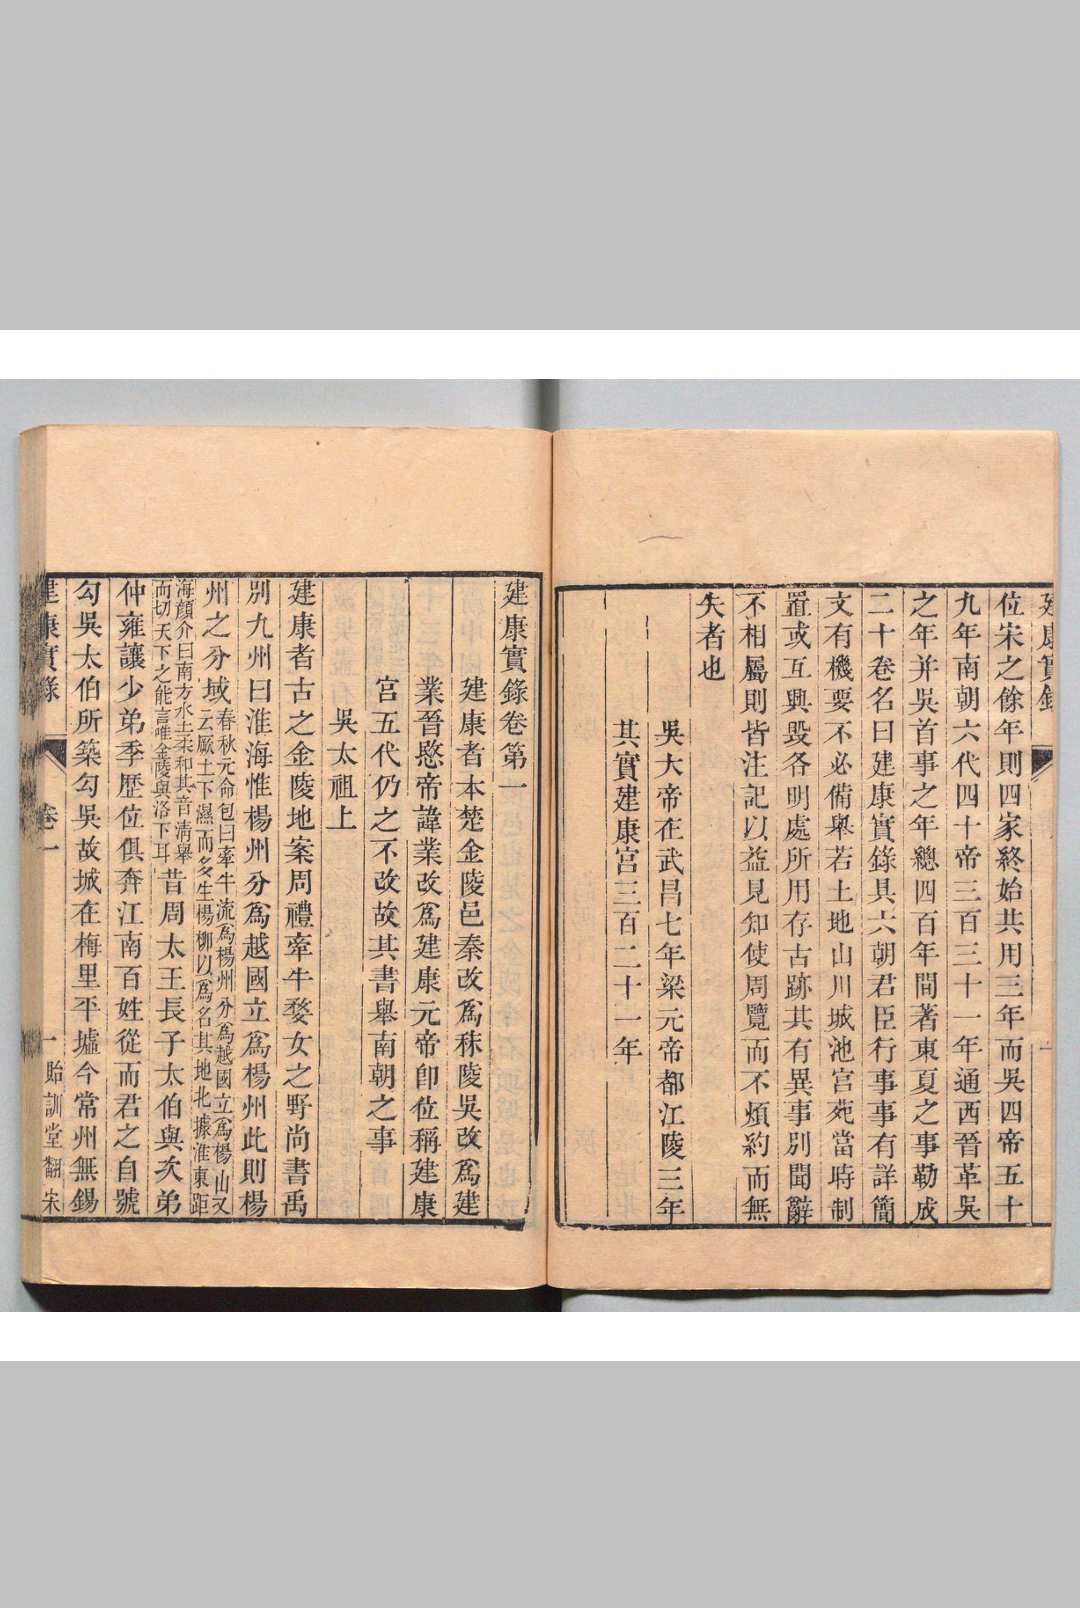 建康實錄
一
位宋之餘年則四家終始共用三年而吳四帝五十
九年南朝六代四十帝三百三十一年通西晉革吳
之年并吳首事之年總四百年間著東夏之事勒成
二十卷名曰建康實錄具六朝君臣行事事有詳簡
文有機要不必備舉若土地山川城池宮苑當時制
置或互興毀各明處所用存古跡其有異事別聞辭
不相屬則皆注記以益見知使周覽而不煩約而無
失者也
吳大帝在武昌七年梁元帝都江陵三年
其實建康宮三百二十一年
建康實錄卷第一
建康者本楚金陵邑秦改爲秣陵吳改爲建
業晉愍帝諱業改爲建康元帝卽位稱建康
宮五代仍之不改故其書舉南朝之事
吳太祖上
建康者古之金陵地案周禮牽牛婺女之野尚書禹
別九州曰淮海惟楊州分爲越國立爲楊州此則楊
州之分域春秋元命包曰牽牛流爲楊州分爲越國立爲楊山又
云厥土下濕而多生楊柳以爲名其地北據淮東距
海顏介曰南方水土柔和其音清舉
而切天下之能言唯金陵與洛下耳昔周太王長子太伯與次弟
仲雍讓少弟季歷位俱奔江南百姓從而君之自號
勾吳太伯所築勾吳故城在梅里平墟今常州無錫
建康實錄 卷一 一 貽訓堂翻宋